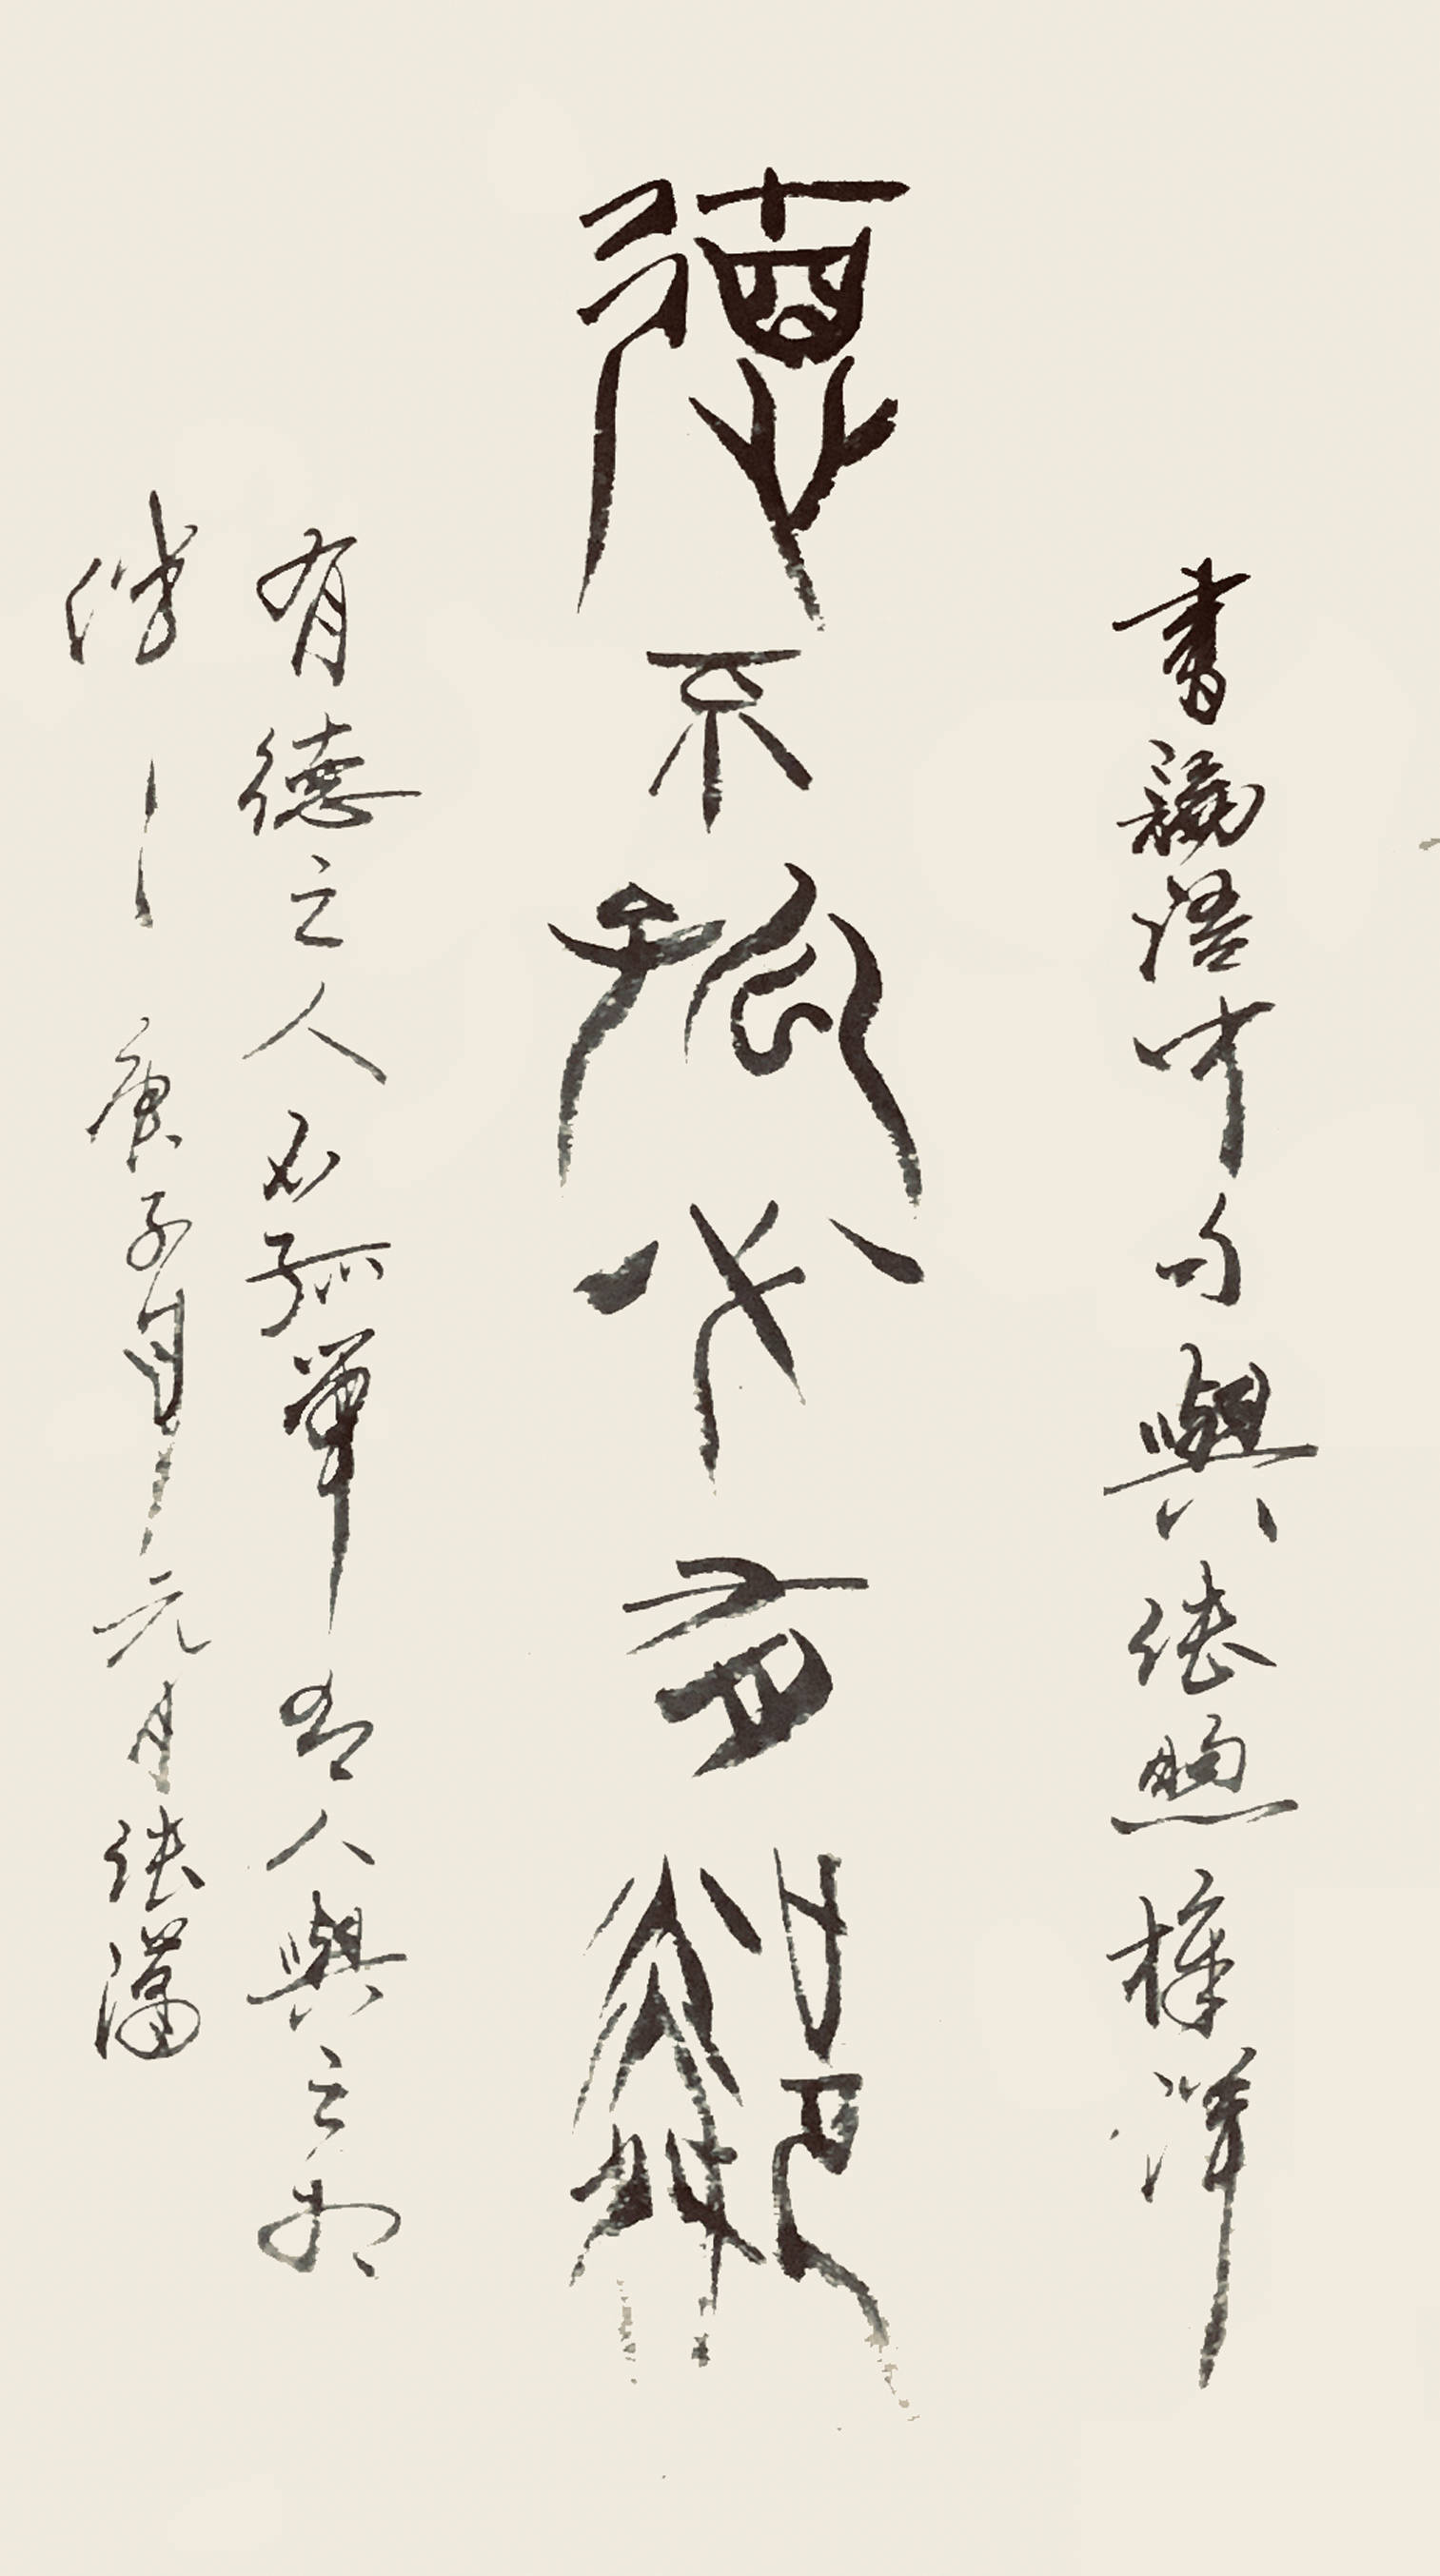 書論語中句與德怱樣洋
德不孤必有鄰
有德之人不孤單有人與之相
伴 庚子年元月張藩